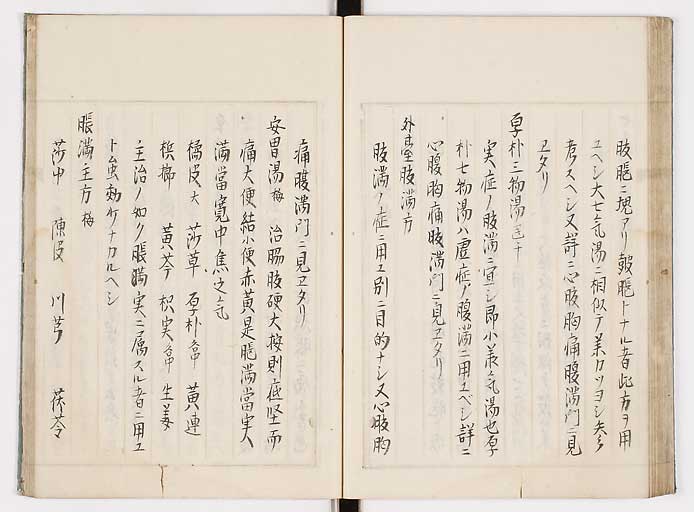 肢脹ニ塊アリ皷脹トナル者此方ヲ用
ユヘシ大七気湯ニ相似テ業カツヨシ
考スヘシ又詳ニ心肢胸痛腹満門ニ見
ヱタリ
厚朴三物湯
実症ノ肢満ニ宜シ即小羕気湯也厚
朴七物湯ハ虚症ノ腹満ニ用ユベシ詳ニ
心腹胸痛肢満門ニ見ヱタリ
外臺肢満方
肢満ノ症ニ用ユ別ニ目的ナシ又心肢胸
痛腹満門ニ見ヱタリ
安胃湯 梅 治腸肢硬大按則底堅而
痛大便結小便赤黄是脹満當実人
満當寛中焦之気
橘皮大 莎草 厚朴各中 黄連
檳榔 黄芩 枳実各中 生姜
主治ノ如ク脹満実ニ属スル者ニ用ユ
ト虽効ケナカルヘシ
脹満主方 梅
莎中 陳皮 川芎 茯苓